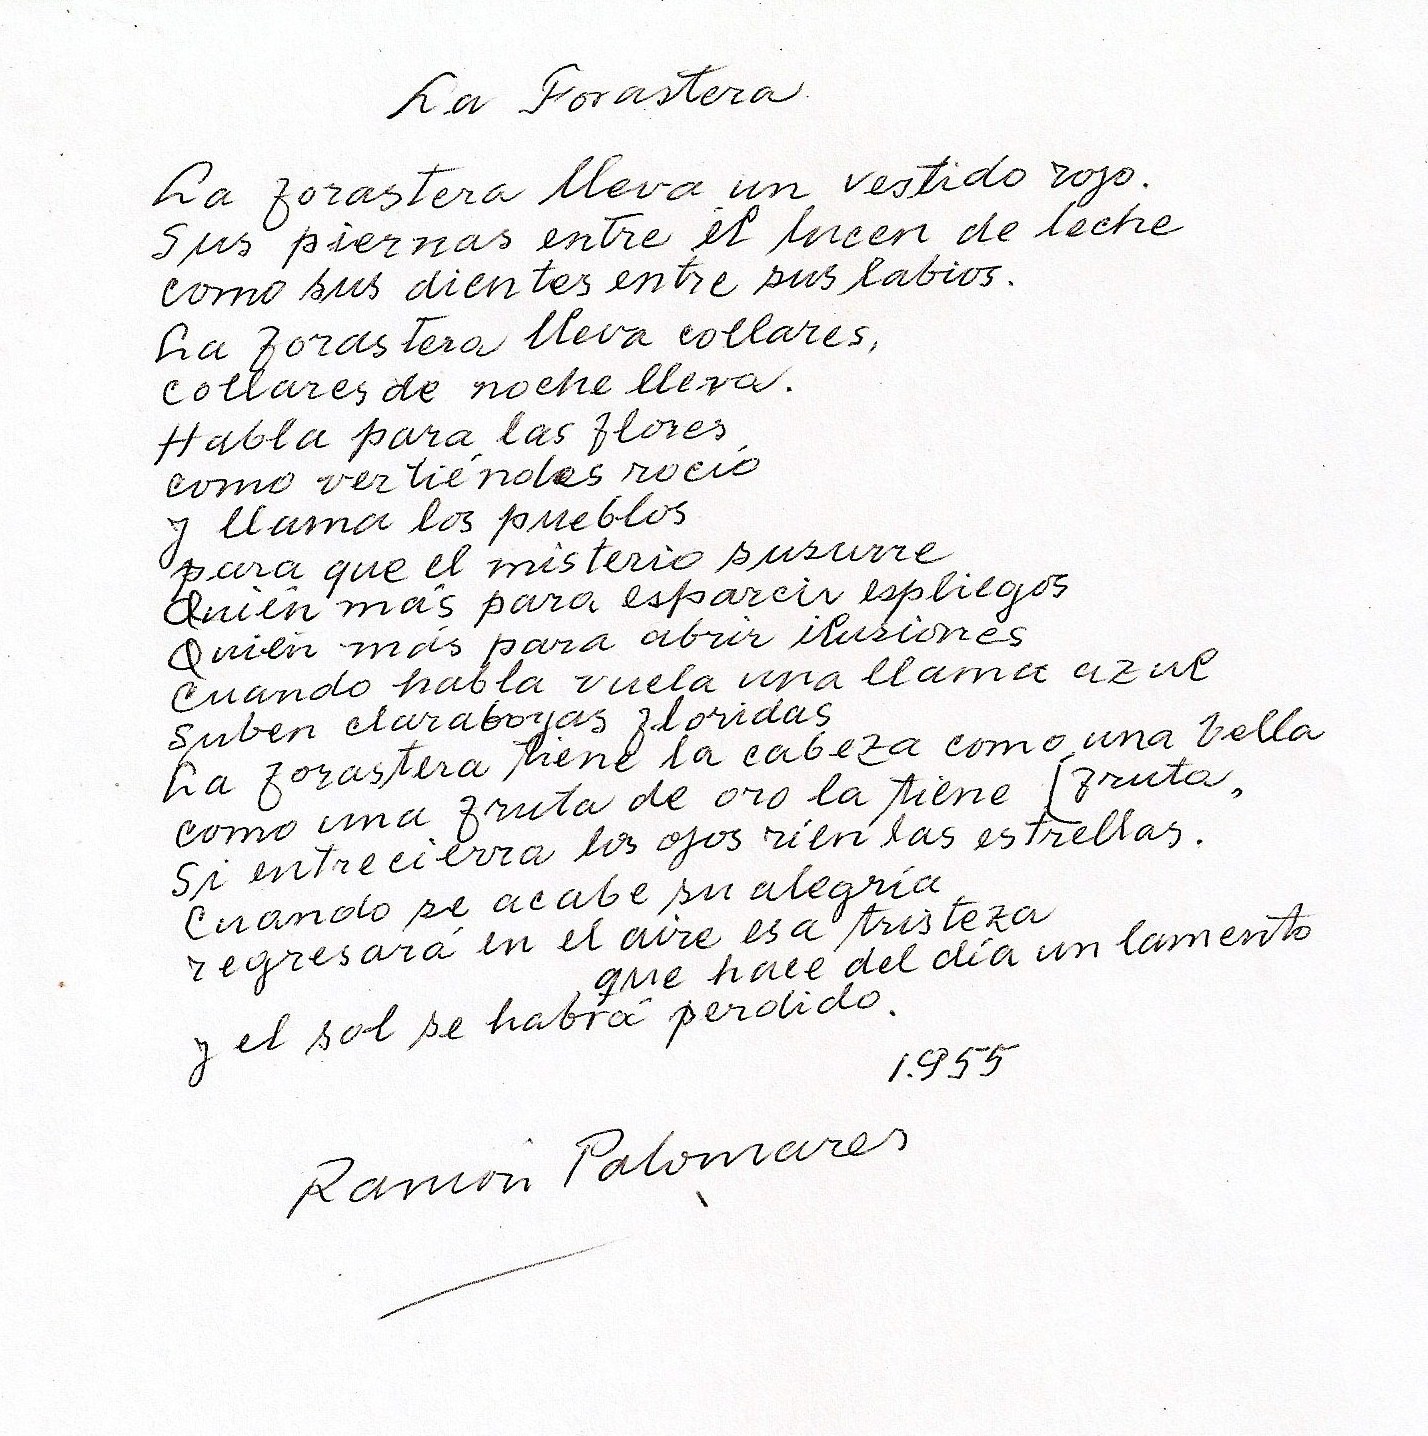 La Forastera
La forastera lleva un vestido rojo.
Sus piernas entre él lucen de leche
como sus dientes entre sus labios.
La forastera lleva collares,
collares de noche lleva.
Habla para las flores
como vertiéndoles rocío
y llama los pueblos
para que el misterio susurre
Quién más para esparcir espliegos
Quién más para abrir ilusiones
Cuando habla vuela una llama azul
Suben claraboyas floridas
La forastera tiene la cabeza como una bella
[fruta,
como una fruta de oro la tiene
Si entrecierra los ojos ríen las estrellas.
Cuando se acabe su alegría
regresará en el aire esa tristeza
que hace del día un lamento
y el sol se habrá perdido.
1.955
Ramón Palomares